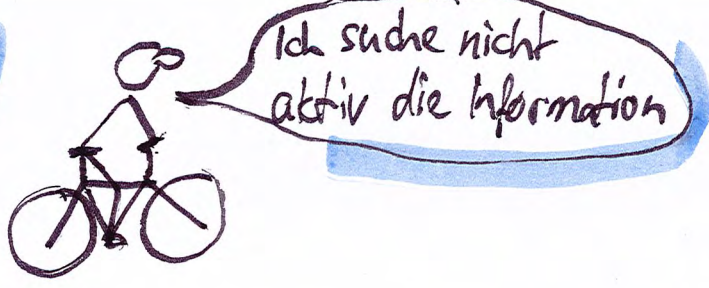 Ich suche nicht
aktiv die Information